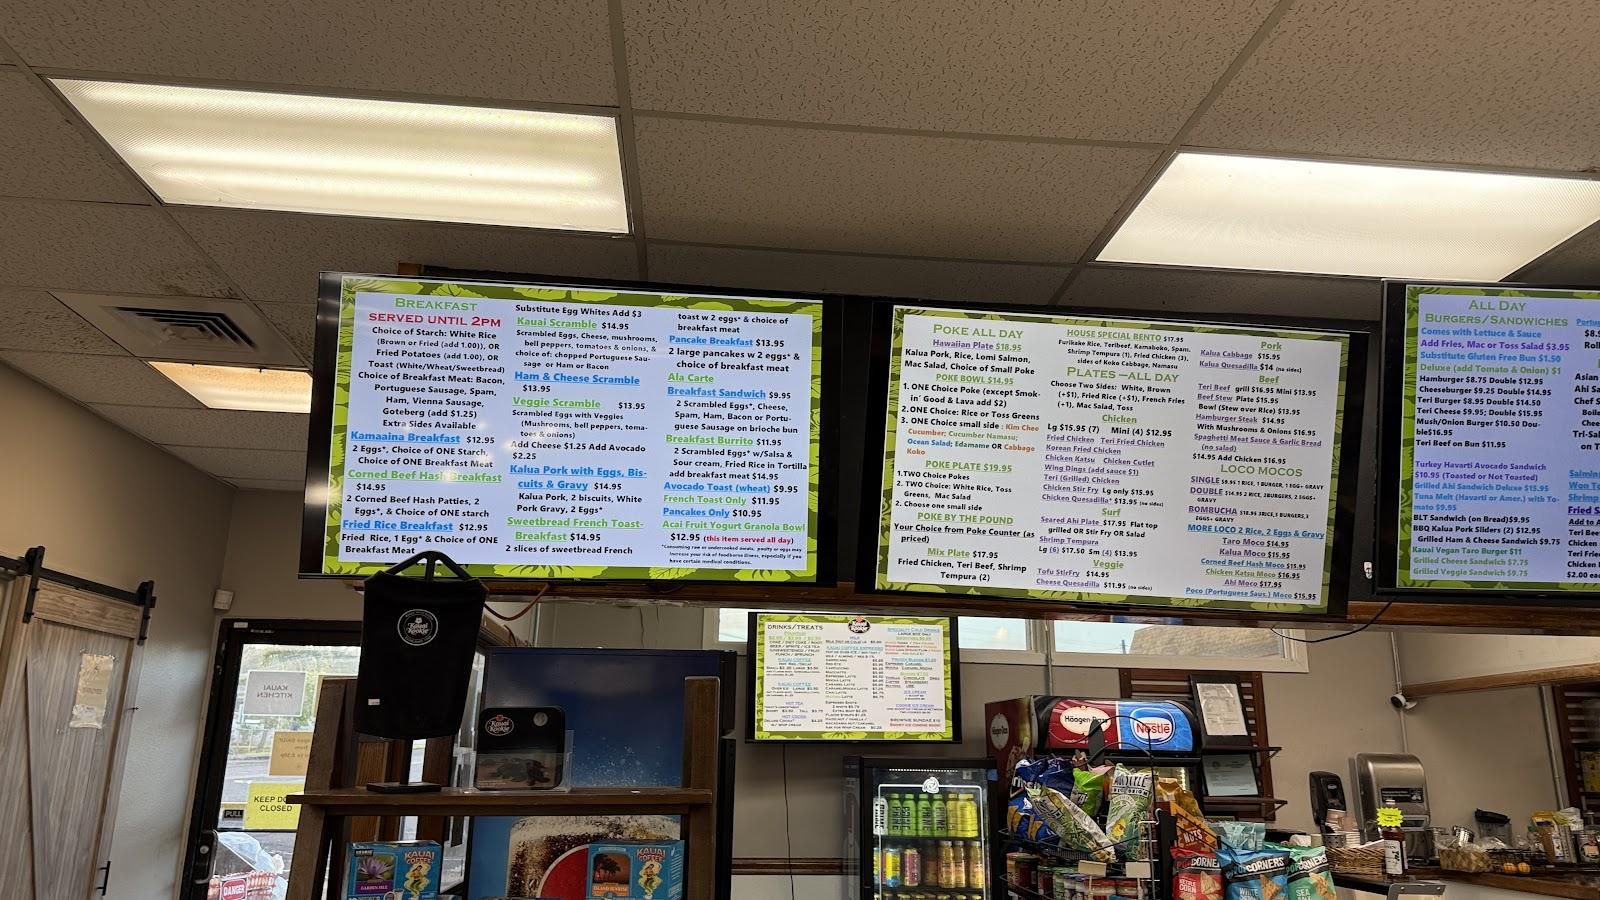 BREAKFAST
SERVED UNTIL 2PM
Choice of Starch: White Rice
(Brown or Fried (add 1.00)), OR
Fried Potatoes (add 1.00), OR
Toast (White/Wheat/Sweetbread)
Choice of Breakfast Meat: Bacon,
Portuguese Sausage, Spam,
Ham, Vienna Sausage,
Goteberg (add $1.25)
Extra Sides Available
Kamaaina Breakfast $12.95
2 Eggs*, Choice of ONE Starch,
Choice of ONE Breakfast Meat
Corned Beef Hash Breakfast
$14.95
2 Corned Beef Hash Patties, 2
Eggs*, & Choice of ONE starch
Fried Rice Breakfast $12.95
Fried Rice, 1 Egg* & Choice of ONE
Breakfast Meat
Substitute Egg Whites Add $3
Kauai Scramble $14.95
Scrambled Eggs, Cheese, mushrooms,
bell peppers, tomatoes & onions, &
choice of: chopped Portuguese Sau-
sage or Ham or Bacon
Ham & Cheese Scramble
$13.95
Veggie Scramble $13.95
Scrambled Eggs with Veggies
(Mushrooms, bell peppers, toma-
toes & onions)
Add Cheese $1.25 Add Avocado
$2.25
Kalua Pork with Eggs, Bis-
cuits & Gravy $14.95
Kalua Pork, 2 biscuits, White
Pork Gravy, 2 Eggs*
Sweetbread French Toast-
Breakfast $14.95
2 slices of sweetbread French
toast w 2 eggs* & choice of
breakfast meat
Pancake Breakfast $13.95
2 large pancakes w 2 eggs* &
choice of breakfast meat
Ala Carte
Breakfast Sandwich $9.95
2 Scrambled Eggs*, Cheese,
Spam, Ham, Bacon or Portu-
guese Sausage on brioche bun
Breakfast Burrito $11.95
2 Scrambled Eggs* w/Salsa &
Sour cream, Fried Rice in Tortilla
add breakfast meat $14.95
Avocado Toast (wheat) $9.95
French Toast Only $11.95
Pancakes Only $10.95
Acai Fruit Yogurt Granola Bowl
$12.95 (this item served all day)
*Consuming raw or undercooked meats, poulty or eggs may
increase your risk of foodborne illness, especially if you
have certain medical conditions.
POKE ALL DAY
Hawaiian Plate $18.95
Kalua Pork, Rice, Lomi Salmon,
Mac Salad, Choice of Small Poke
POKE BOWL $14.95
1. ONE Choice Poke (except Smok-
in' Good & Lava add $2)
2. ONE Choice: Rice or Toss Greens
3. ONE Choice small side : Kim Chee
Cucumber; Cucumber Namasu;
Ocean Salad; Edamame OR Cabbage
Koko
POKE PLATE $19.95
1.TWO Choice Pokes
2. TWO Choice: White Rice, Toss
Greens, Mac Salad
2. Choose one small side
POKE BY THE POUND
Your Choice from Poke Counter (as
priced)
Mix Plate $17.95
Fried Chicken, Teri Beef, Shrimp
Tempura (2)
HOUSE SPECIAL BENTO $17.95
Furikake Rice, Teribeef, Kamaboko, Spam,
Shrimp Tempura (1), Fried Chicken (3),
sides of Koko Cabbage, Namasu
PLATES—ALL DAY
Choose Two Sides: White, Brown
(+$1), Fried Rice (+$1), French Fries
(+1), Mac Salad, Toss
Chicken
Lg $15.95 (7) Mini (4) $12.95
Fried Chicken Teri Fried Chicken
Korean Fried Chicken
Chicken Katsu Chicken Cutlet
Wing Dings (add sauce $1)
Teri (Grilled) Chicken
Chicken Stir Fry Lg only $15.95
Chicken Quesadilla* $13.95 (no sides)
Surf
Seared Ahi Plate $17.95 Flat top
grilled OR Stir Fry OR Salad
Shrimp Tempura
Lg (6) $17.50 Sm (4) $13.95
Veggie
Tofu StirFry $14.95
Cheese Quesadilla $11.95 (no sides)
Pork
Kalua Cabbage $15.95
Kalua Quesadilla $14 (no sides)
Beef
Teri Beef grill $16.95 Mini $13.95
Beef Stew Plate $15.95
Bowl (Stew over Rice) $13.95
Hamburger Steak $14.95
With Mushrooms & Onions $16.95
Spaghetti Meat Sauce & Garlic Bread
(no salad)
$14.95 Add Chicken $16.95
LOCO MOCOS
SINGLE $9.95 1 RICE, 1 BURGER, 1 EGG+ GRAVY
DOUBLE $14.95 2 RICE, 2BURGERS, 2 EGGS+
GRAVY
BOMBUCHA $18.95 3RICE,3 BURGERS,3
EGGS+ GRAVY
MORE LOCO 2 Rice, 2 Eggs & Gravy
Taro Moco $14.95
Kalua Moco $15.95
Corned Beef Hash Moco $15.95
Chicken Katsu Moco $16.95
Ahi Moco $17.95
Poco (Portuguese Saus.) Moco $15.95
ALL DAY
BURGERS/SANDWICHES
Comes with Lettuce & Sauce
Add Fries, Mac or Toss Salad $3.95
Substitute Gluten Free Bun $1.50
Deluxe (add Tomato & Onion) $1
Hamburger $8.75 Double $12.95
Cheeseburger $9.25 Double $14.95
Teri Burger $8.95 Double $14.50
Teri Cheese $9.95; Double $15.95
Mush/Onion Burger $10.50 Dou-
ble$16.95
Teri Beef on Bun $11.95
Turkey Havarti Avocado Sandwich
$10.95 (Toasted or Not Toasted)
Grilled Ahi Sandwich Deluxe $15.95
Tuna Melt (Havarti or Amer.) with To-
mato $9.95
BLT Sandwich (on Bread)$9.95
BBQ Kalua Pork Sliders (2) $12.95
Grilled Ham & Cheese Sandwich $9.75
Kauai Vegan Taro Burger $11
Grilled Cheese Sandwich $7.75
Grilled Veggie Sandwich $9.75
DRINKS/TREATS
KAUAI COFFEE
KAUAI COFFEE
HOT TEA
HOT COCOA
MILK
KAUAI COFFEE ESPRESSO
SPECIALTY COLD DRINKS
ICE CREAM
BROWNIE SUNDAE $10
Kauai Kookie
Kauai Kookie
KAUAI
KITCHEN
KEEP
CLOSED
PULL
DANGER
KAUAI
COFFEE
GARDEN ISLE
KAUAI
COFFEE
ISLAND SUNRISE
Häagen-Dazs
Nestlé